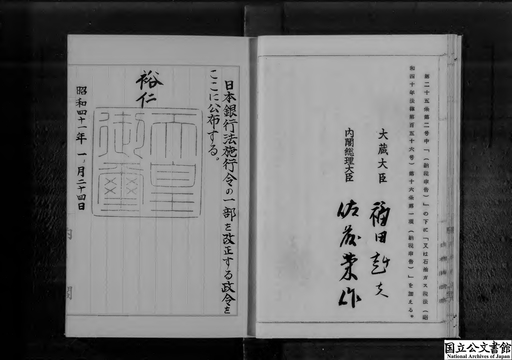 第二十五条第二号中「(納税申告)」の下に「又は石油ガス税法(昭
和四十年法律第百五十六号)第十六条第一項(納税申告)」を加える。
大蔵大臣 福田赳夫
内閣総理大臣 佐藤榮作
日本銀行法施行令の一部を改正する政令を
ここに公布する。
裕仁
天皇
御璽
昭和四十一年一月二十四日
国立公文書館
National Archives of Japan